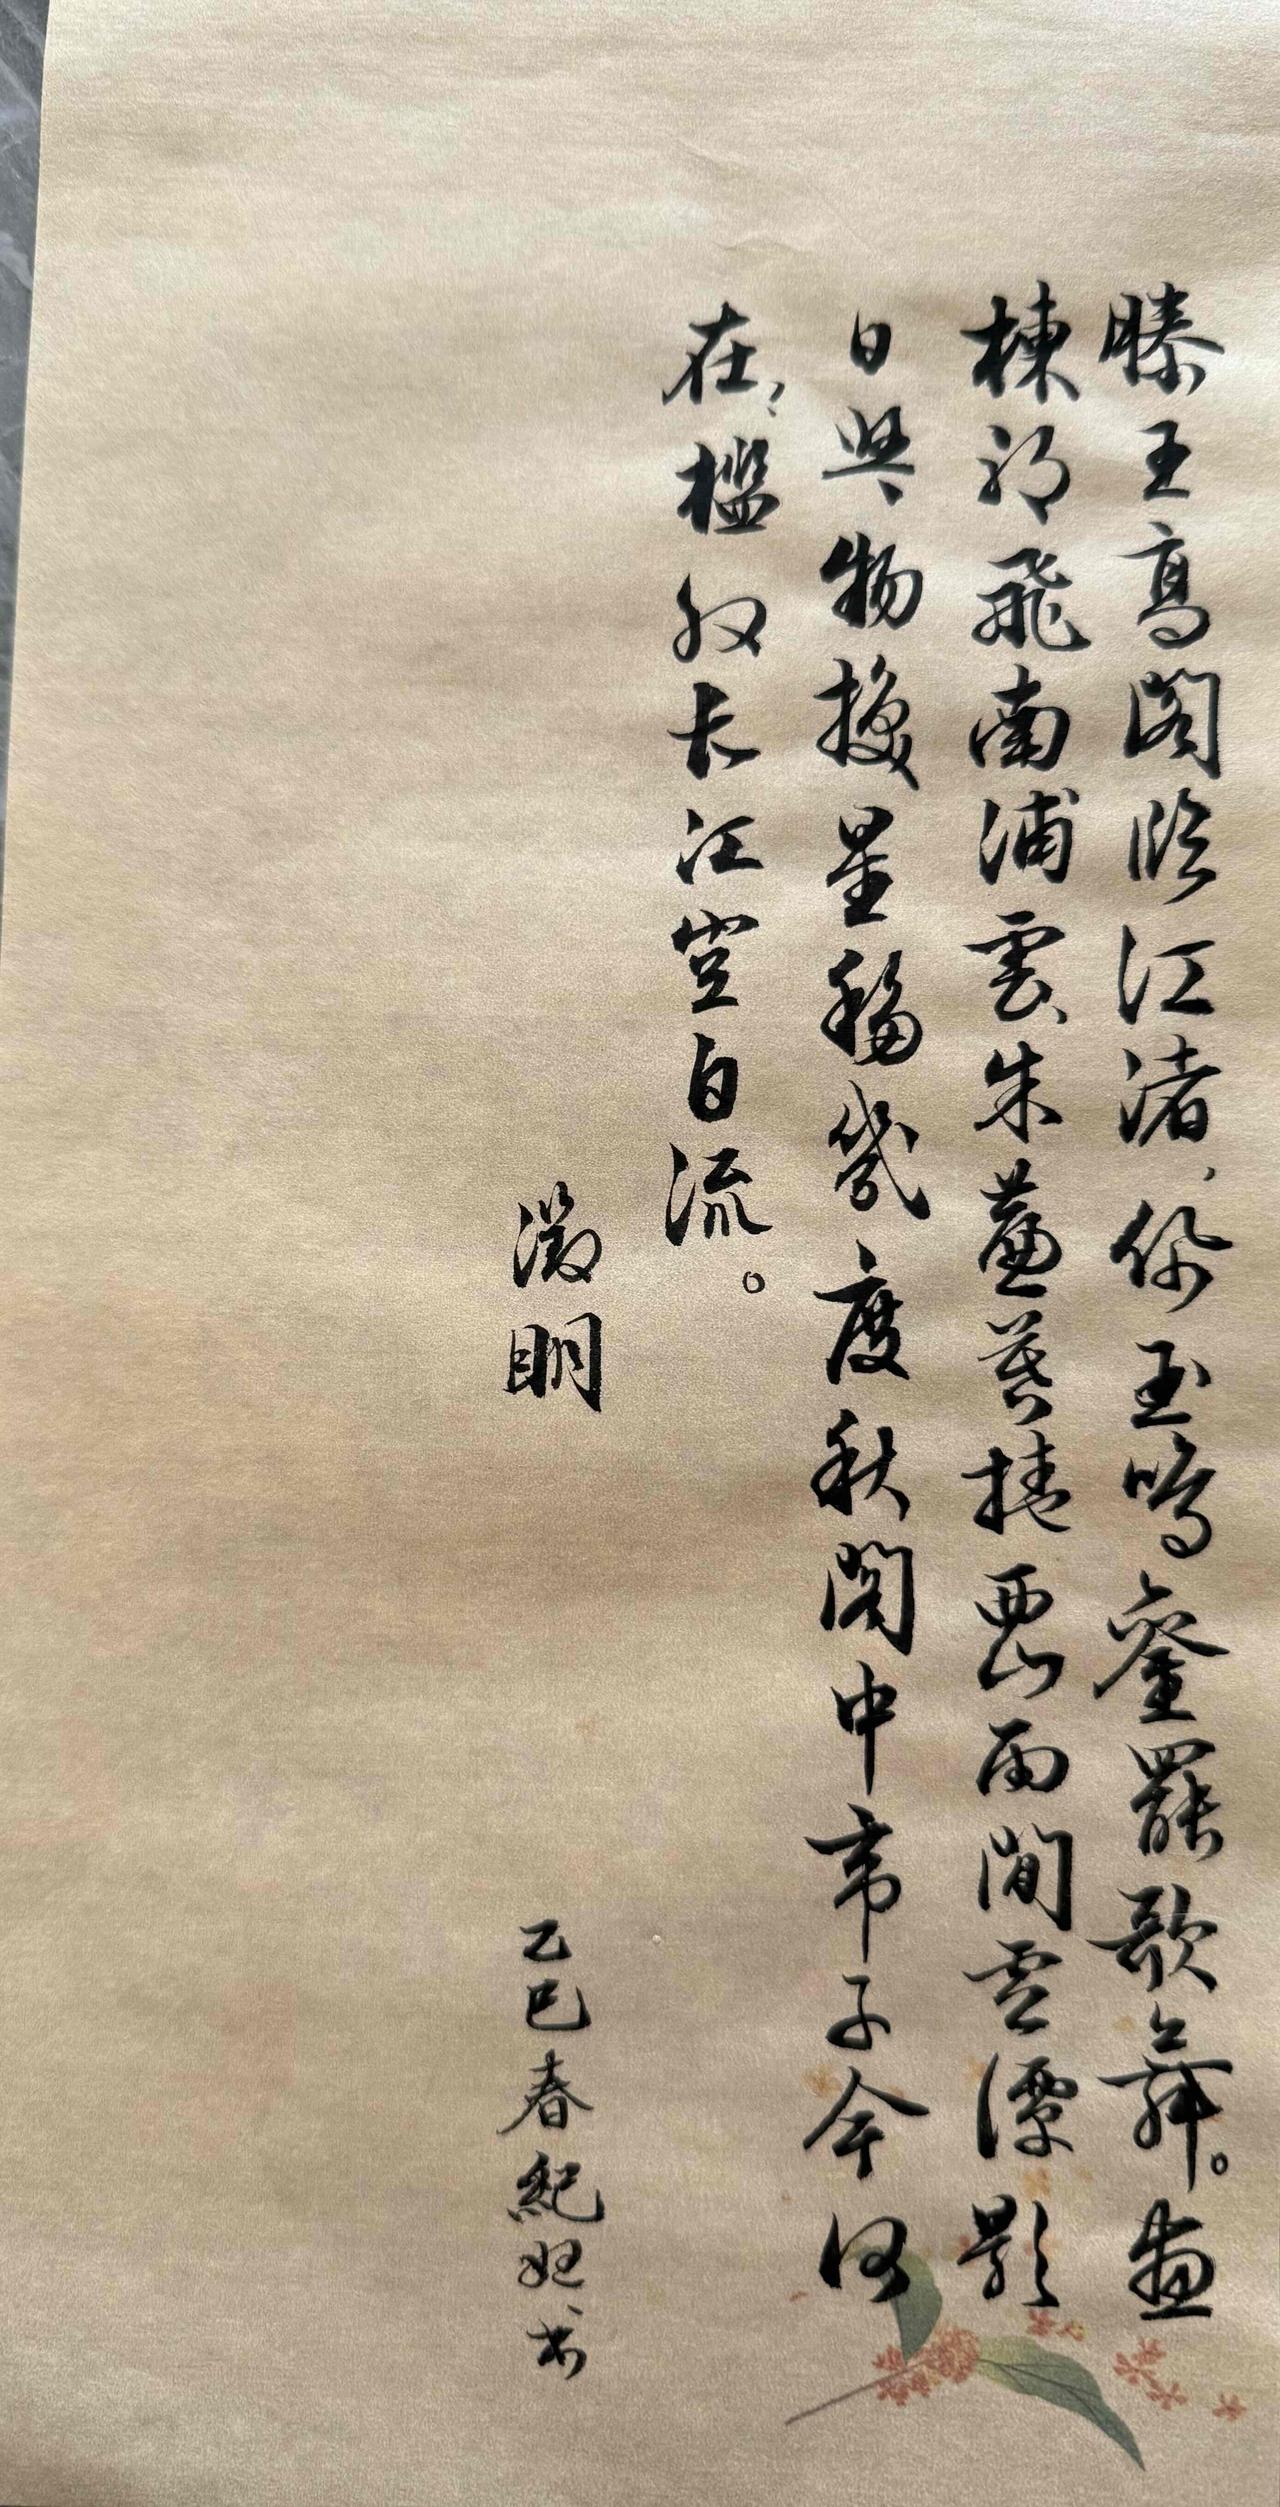 滕王高閣臨江渚，佩玉鳴鑾罷歌舞。畫
棟朝飛南浦雲朱簾暮捲西山雨閒雲潭影
日興物換星移幾度秋閣中帝子今何
在，檻外長江空自流。
徵明
乙巳春紀妃书